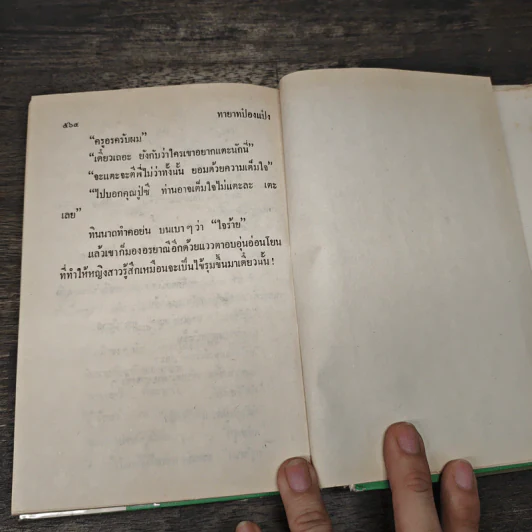 ๕๖๕
ทายาทป๋องแป๋ง
“ครูอรครับผม”
“เดี๋ยวเถอะ ยังกับว่าใครเขาอยากแตะนักนี่”
“จะแตะจะตีก็ไม่ว่าทั้งนั้น ยอมด้วยความเต็มใจ”
“ไปบอกคุณปู่ซี ท่านอาจเต็มใจไม่แตะละ เตะ
เลย”
ทินนาถทำคอย่น บนเบา ๆ ว่า “ใจร้าย”
แล้วเขาก็มองอรยาณีอีกด้วยแววตาอบอุ่นอ่อนโยน
ที่ทำให้หญิงสาวรู้สึกเหมือนจะเป็นไข้รุมขึ้นมาเดี๋ยวนั้น !